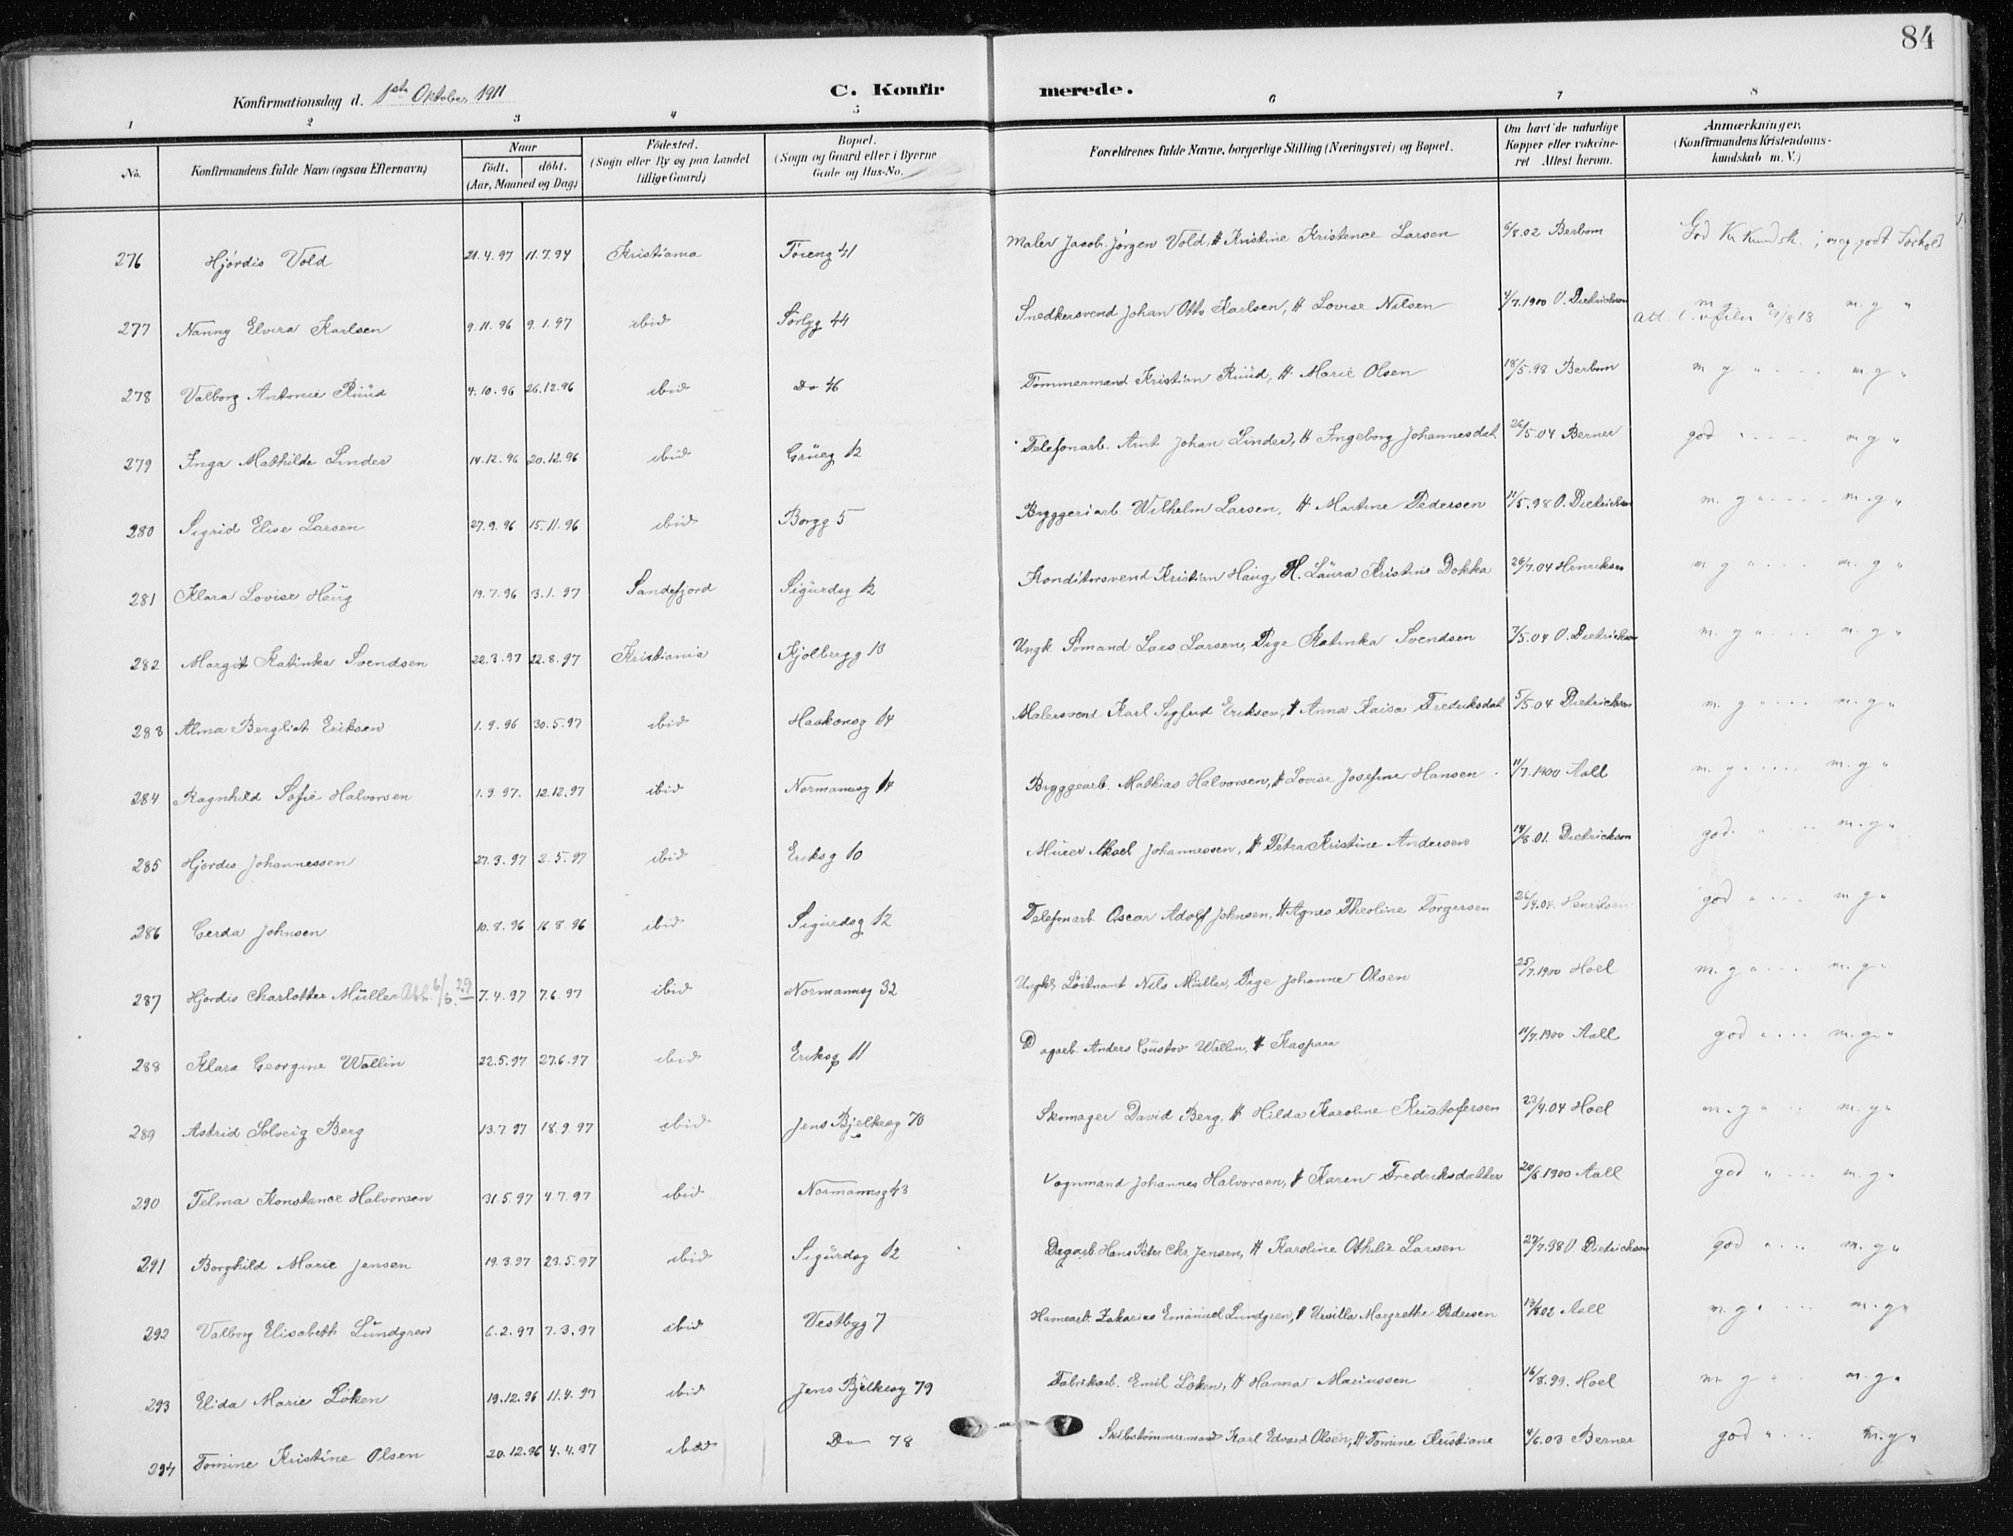 84
Konfirmationsdag d. 1ste Oktober 1911 C. Konfirmerede.
1 2 3 4 5 6 7 8
No. Konfirmandens fulde Navn (ogsaa Efternavn) Naar født. døbt. (Aar, Maaned og Dag) Fødested. (Sogn eller By og paa Landet tillige Gaard) Bopæl. (Sogn og Gaard eller i Byerne Gade og Hus-No. Forældrenes fulde Navne, borgerlige Stilling (Næringsvei) og Bopæl. Om havt de naturlige Kopper eller vaccineret Attest herom. Anmærkninger. (Konfirmandens Kristendomskundskab m. V.)
276 Hjördis Vold 21.4.97 11.7.97 Kristiania Töieng 41 Maler Jacob Jörgen Vold, H Kristine Kristence Larsen 6/8.02 Berbom God Kr. Kundsk. ; meg. godt Forhold
277 Nanny Elvira Karlsen 9.11.96 9.1.97 ibid Sörlyg 44 Snedkersvend Johan Otto Karlsen, H Lovise Nilsen 4/7.1900 O. Dietrichson m g " m g "
Att. 9/8 18
278 Valborg Antonie Rüüd 4.10.96 26.12.96 ibid Do 46 Tömmermand Kristian Rüüd, H Marie Olsen 18/5.98 Berbom m g " m g "
279 Inga Mathilde Linder 14.12.96 20.12.96 ibid Grüeg 12 Telefonarb. Arnt Johan Linder, H Ingeborg Johannesdat 26/5.04 Berner god " m g "
280 Sigrid Elise Larsen 27.9.96 15.11.96 ibid Borgg 5 Bryggeriarb Wilhelm Larsen, H Martine Pedersen 11/5.98 O. Dietrichson m. g " m. g "
281 Klara Lovise Haüg 19.7.96 3.1.97 Sandefjord Sigürdsg 12 Konditorsvend Kristian Haüg, H. Laüra Kristine Dokka 26/7.04 Henriksen m g " m. g "
282 Margit Katinka Svendsen 22.3.97 22.8.97 Kristiania Kjölbergg 13 Ungk. Sömand Lars Larsen, Pige Katinka Svendsen 7/5.04 O. Dietrichson m. g " m. g "
283 Alma Bergliot Eriksen 1.9.96 30.5.97 ibid Haakonsg 14 Malersvend Karl Sigfrid Eriksen, H Anna Kaisa Fredriksdat 5/5.04 Dietrichson m. g " m. g "
284 Ragnhild Sofie Halvorsen 1.9.97. 12.12.97 ibid Normannsg 14 Bryggearb. Mathias Halvorsen, H Lovise Josefine Hansen 11/7.1900 Aall m. g " m. g "
285 Hjördis Johannessen 27.3.97 2.5.97 ibid Eriksg 10 Mürer Aksel Johannessen, H Petra Kristine Andersen 14/8.01. Dietrichson god. " m. g "
286 Gerda Johnsen 10.8.96 16.8.96 ibid Sigürdsg 12 Telefonarb Oscar Adolf Johnsen, H Agnes Theoline Torgersen 26/4.04. Henriksen god " m g "
287 Hjördis Charlotte Müller Att. 6/6.29 7.4.97 7.6.97 ibid Normannsg 32 Ungk. Löitnant Nils Müller, Pige Johanne Olsen 25/7.1900 Hoel m. g " m. g "
288 Klara Georgine Wallin 22.5.97 27.6.97 ibid Eriksg 11 Dagarb. Anders Güstav Wallin, H Kaspara 11/7.1900 Aall god " m. g "
289 Astrid Solveig Berg 13.7.97 18.9.97 ibid Jens Bjelkesg 70 Skomager David Berg, H Hilda Karoline Kristofersen 23/4.04 Hoel m. g " m. g "
290 Telma Konstance Halvorsen 31.5.97 4.7.97 ibid Normannsg 43 Vognmand Johannes Halvorsen, H Karen Fredriksdatter 20/6.1900 Aall god " m. g "
291 Borghild Marie Jensen 19.3.97 23.5.97 ibid Sigürdsg 12 Dagarb. Hans Peter Chr. Jensen, H Karoline Othilie Larsen 27/7.98 O Dietrichson god " m. g "
292 Valborg Elisabeth Lündgren 6.2.97 7.3.97 ibid Vestbyg 7 Havnearb. Zakarias Emanuel Lundgren, H Ursilla Margrethe Pedersen 13/8 02 Aall m. g " m. g "
293 Elida Marie Löken 19.12.96 11.4.97 ibid Jens Bjelkesg 79 Fabrikarb. Emil Löken, H Hanna Marinssen 16/8.99. Hoel m g " m. g "
294 Tomine Kristine Olsen 20.12.96 4.4.97 ibid Do 78 Skibstömmermand Karl Edvard Olsen, H Tomine Kristiane 4/6.03 Berner god " m. g "